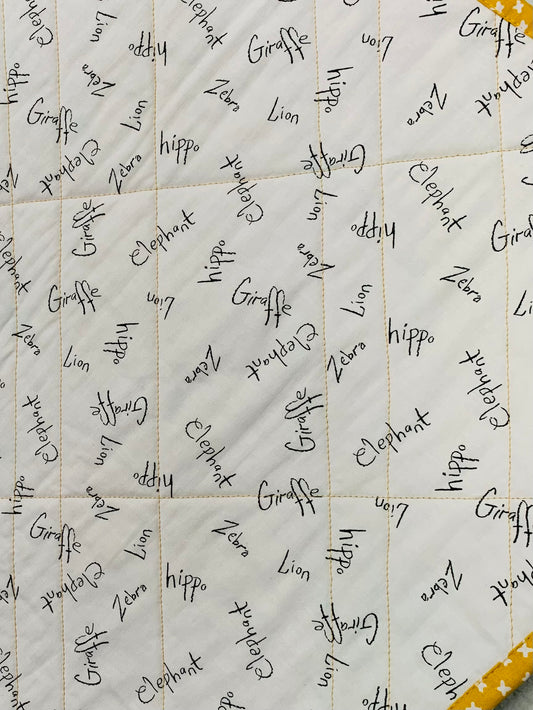 Elephant
Lion
hippo
Elephant
Giraffe
Lion
hippo
Giraffe
hippo
Zebra
Giraffe
Lion
Zebra
Lion
hippo
Zebra
Elephant
Elephant
Zebra
hippo
Elephant
Giraffe
Elephant
Giraffe
Lion
hippo
Elephant
Giraffe
Elephant
hippo
Zebra
Giraffe
Lion
Giraffe
Lion
Zebra
Zebra
Lion
hippo
Zebra
Elephant
Zebra
hippo
Elephant
Giraffe
Lion
Elephant
Giraffe
Elephant
hippo
hippo
Zebra
Giraffe
Lion
Giraffe
Giraffe
Lion
Zebra
Lion
hippo
Elephant
Zebra
hippo
Zebra
Elephant
Giraffe
Elephant
Giraffe
Lion
Elephant
hippo